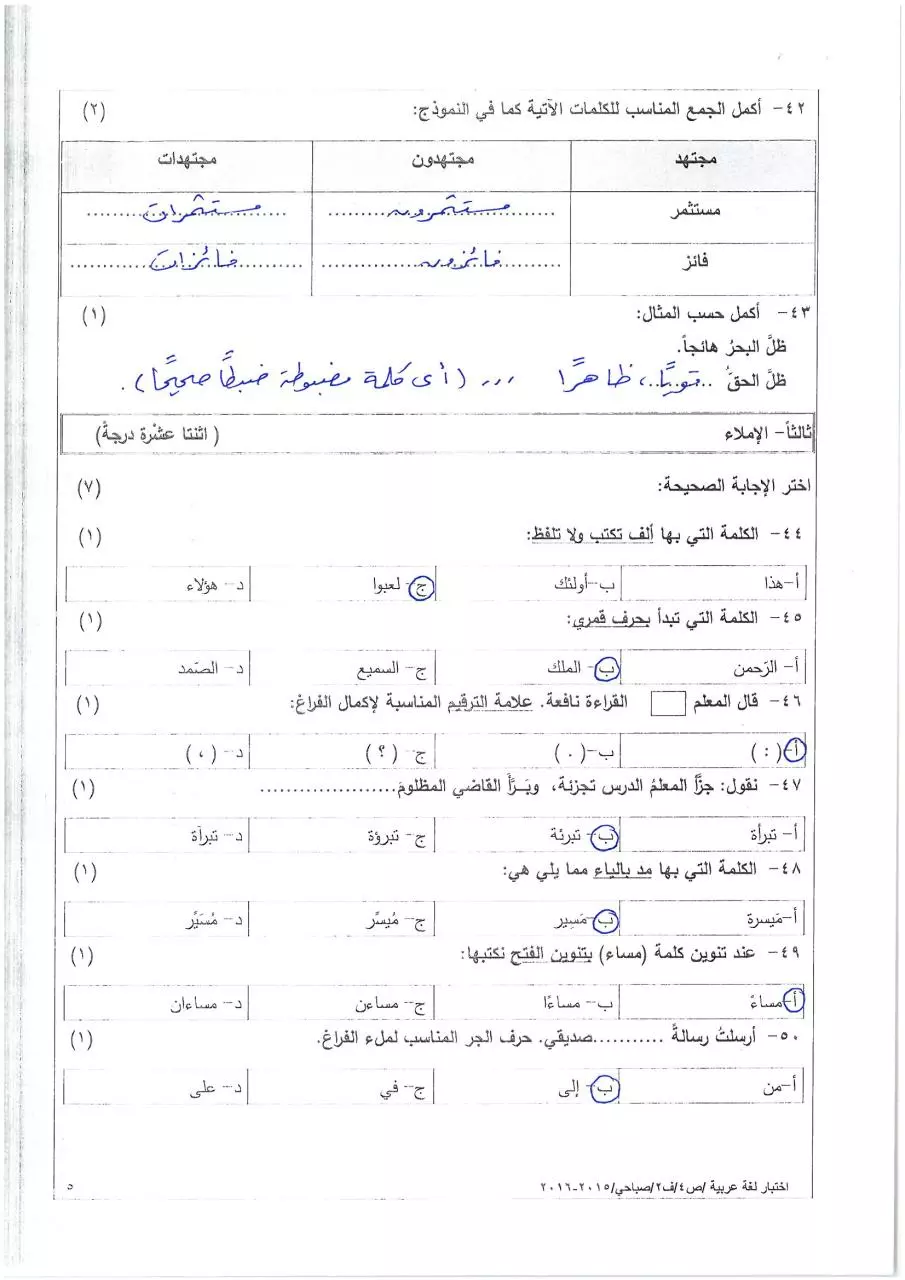 ٤٢- أكمل الجمع المناسب للكلمات الآتية كما في النموذج: (٢)
مجتهد مجتهدون مجتهدات
مستثمر مستثمرون مستثمرات
فائز فائزون فائزات
٤٣- أكمل حسب المثال: (١)
ظلَّ البحرُ هائجاً.
ظلَّ الحقُ ..قويًّا..، ظاهرًا ,,, (أى كلمة مضبوطة ضبطًا صحيحًا).
ثالثاً- الإملاء ( اثنتا عشْرة درجةً)
اختر الإجابة الصحيحة: (٧)
٤٤- الكلمة التي بها ألف تكتب ولا تلفظ: (١)
أ-هذا ب-أولئك ج- لعبوا د- هؤلاء
٤٥- الكلمة التي تبدأ بحرف قمري: (١)
أ- الرّحمن ب- الملك ج- السميع د- الصّمد
٤٦- قال المعلم القراءة نافعة. علامة الترقيم المناسبة لإكمال الفراغ: (١)
أ- ( : ) ب-( . ) ج- ( ؟ ) د- ( ، )
٤٧- نقول: جزَّأ المعلمُ الدرس تجزئة، وبَـرَّأَ القاضي المظلومَ..................... (١)
أ- تبرأة ب- تبرئة ج- تبرؤة د- تبرآة
٤٨- الكلمة التي بها مد بالياء مما يلي هي: (١)
أ-مَيسرة ب- مَسِير ج- مُيسِّر د- مُسَيَّر
٤٩- عند تنوين كلمة (مساء) بتنوين الفتح نكتبها: (١)
أ-مساءً ب- مساءًا ج- مساءن د- مساءان
٥٠- أرسلتُ رسالةً ...........صديقي. حرف الجر المناسب لملء الفراغ. (١)
أ-من ب- إلى ج- في د- على
اختبار لغة عربية /ص٤/ف٢/صباحي/٢٠١٥-٢٠١٦ ٥